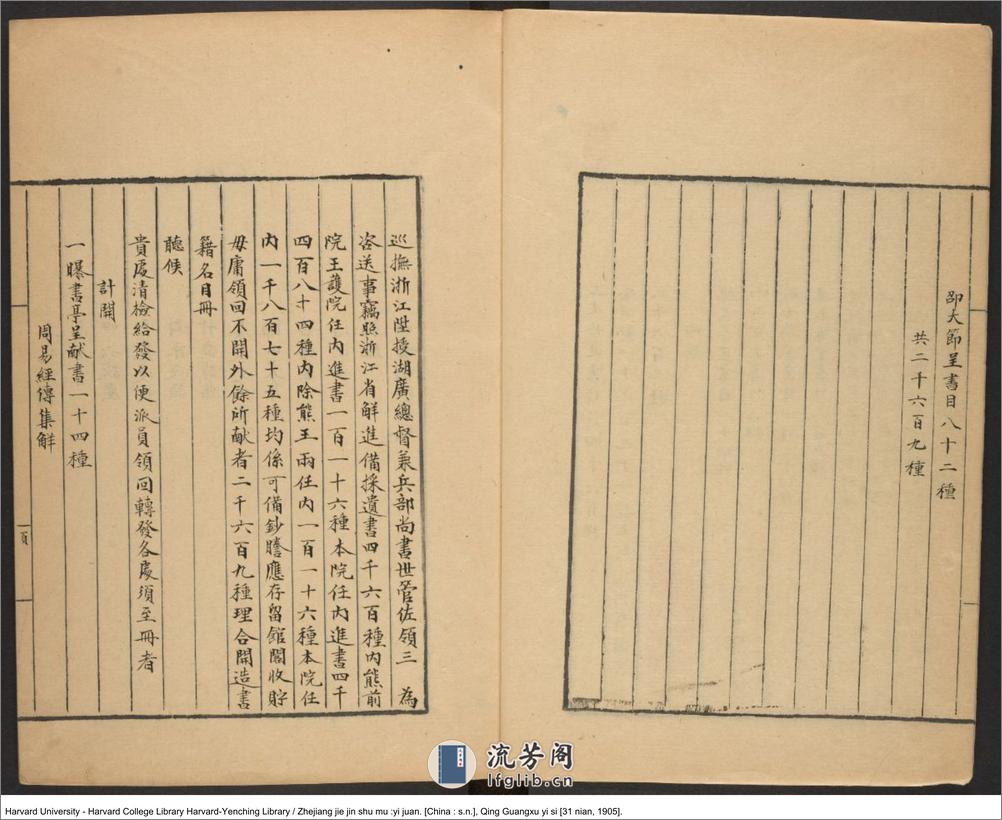 邵大節呈書目八十二種
共二千六百九種
巡撫浙江陞授湖廣總督兼兵部尚書世管佐領三　為
咨送事竊照浙江省解進備採遺書四千六百種內熊前
院王護院任內進書一百一十六種本院任內進書四千
四百八十四種內除熊王兩任內一百一十六種本院任
內一千八百七十五種均係可備鈔謄應存留館閣收貯
毋庸領回不開外餘所献者二千六百九種理合開造書
籍名目冊
聽候
貴處清檢給發以便派員領回轉發各處須至冊者
計開
一曝書亭呈献書一十四種
周易經傳集解
頁
流芳阁
lfglib.cn
Harvard University - Harvard College Library Harvard-Yenching Library / Zhejiang jie jin shu mu :yi juan. [China : s.n.], Qing Guangxu yi si [31 nian, 1905].